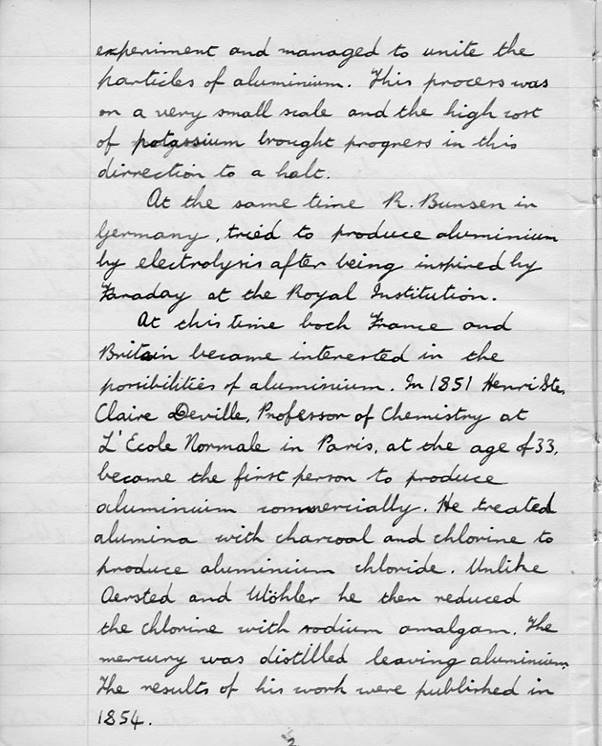 experiment and managed to unite the
particles of aluminium. This process was
on a very small scale and the high cost
of potassium brought progress in this
dirrection to a halt.
At the same time R. Bunsen in
Germany, tried to produce aluminium
by electrolysis after being inspired by
Faraday at the Royal Institution.
At this time both France and
Britain became interested in the
possibilities of aluminium. In 1851 Henri Ste.
Claire Deville, Professor of Chemistry at
L'Ecole Normale in Paris, at the age of 33,
became the first person to produce
aluminium commercially. He treated
alumina with charcoal and chlorine to
produce aluminium chloride. Unlike
Aersted and Wöhler he then reduced
the chlorine with sodium amalgam. The
mercury was distilled leaving aluminium.
The results of his work were published in
1854.
2